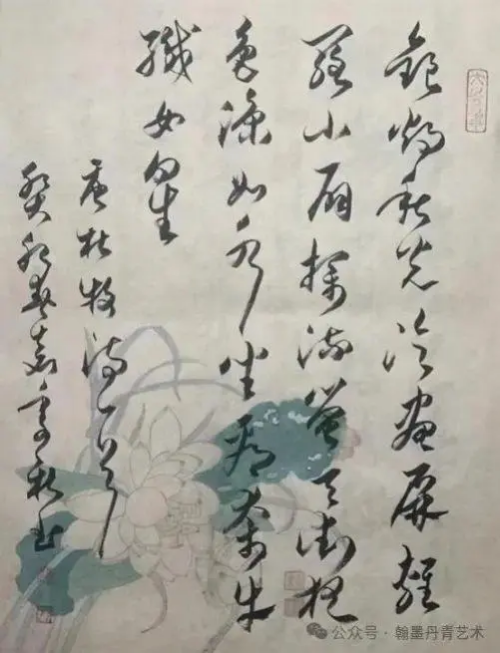 銀燭秋光冷畫屏輕
羅小扇撲流螢天街夜
色涼如水坐看牽牛
織女星
唐杜牧詩一首
癸卯春
公众号·翰墨丹青艺术